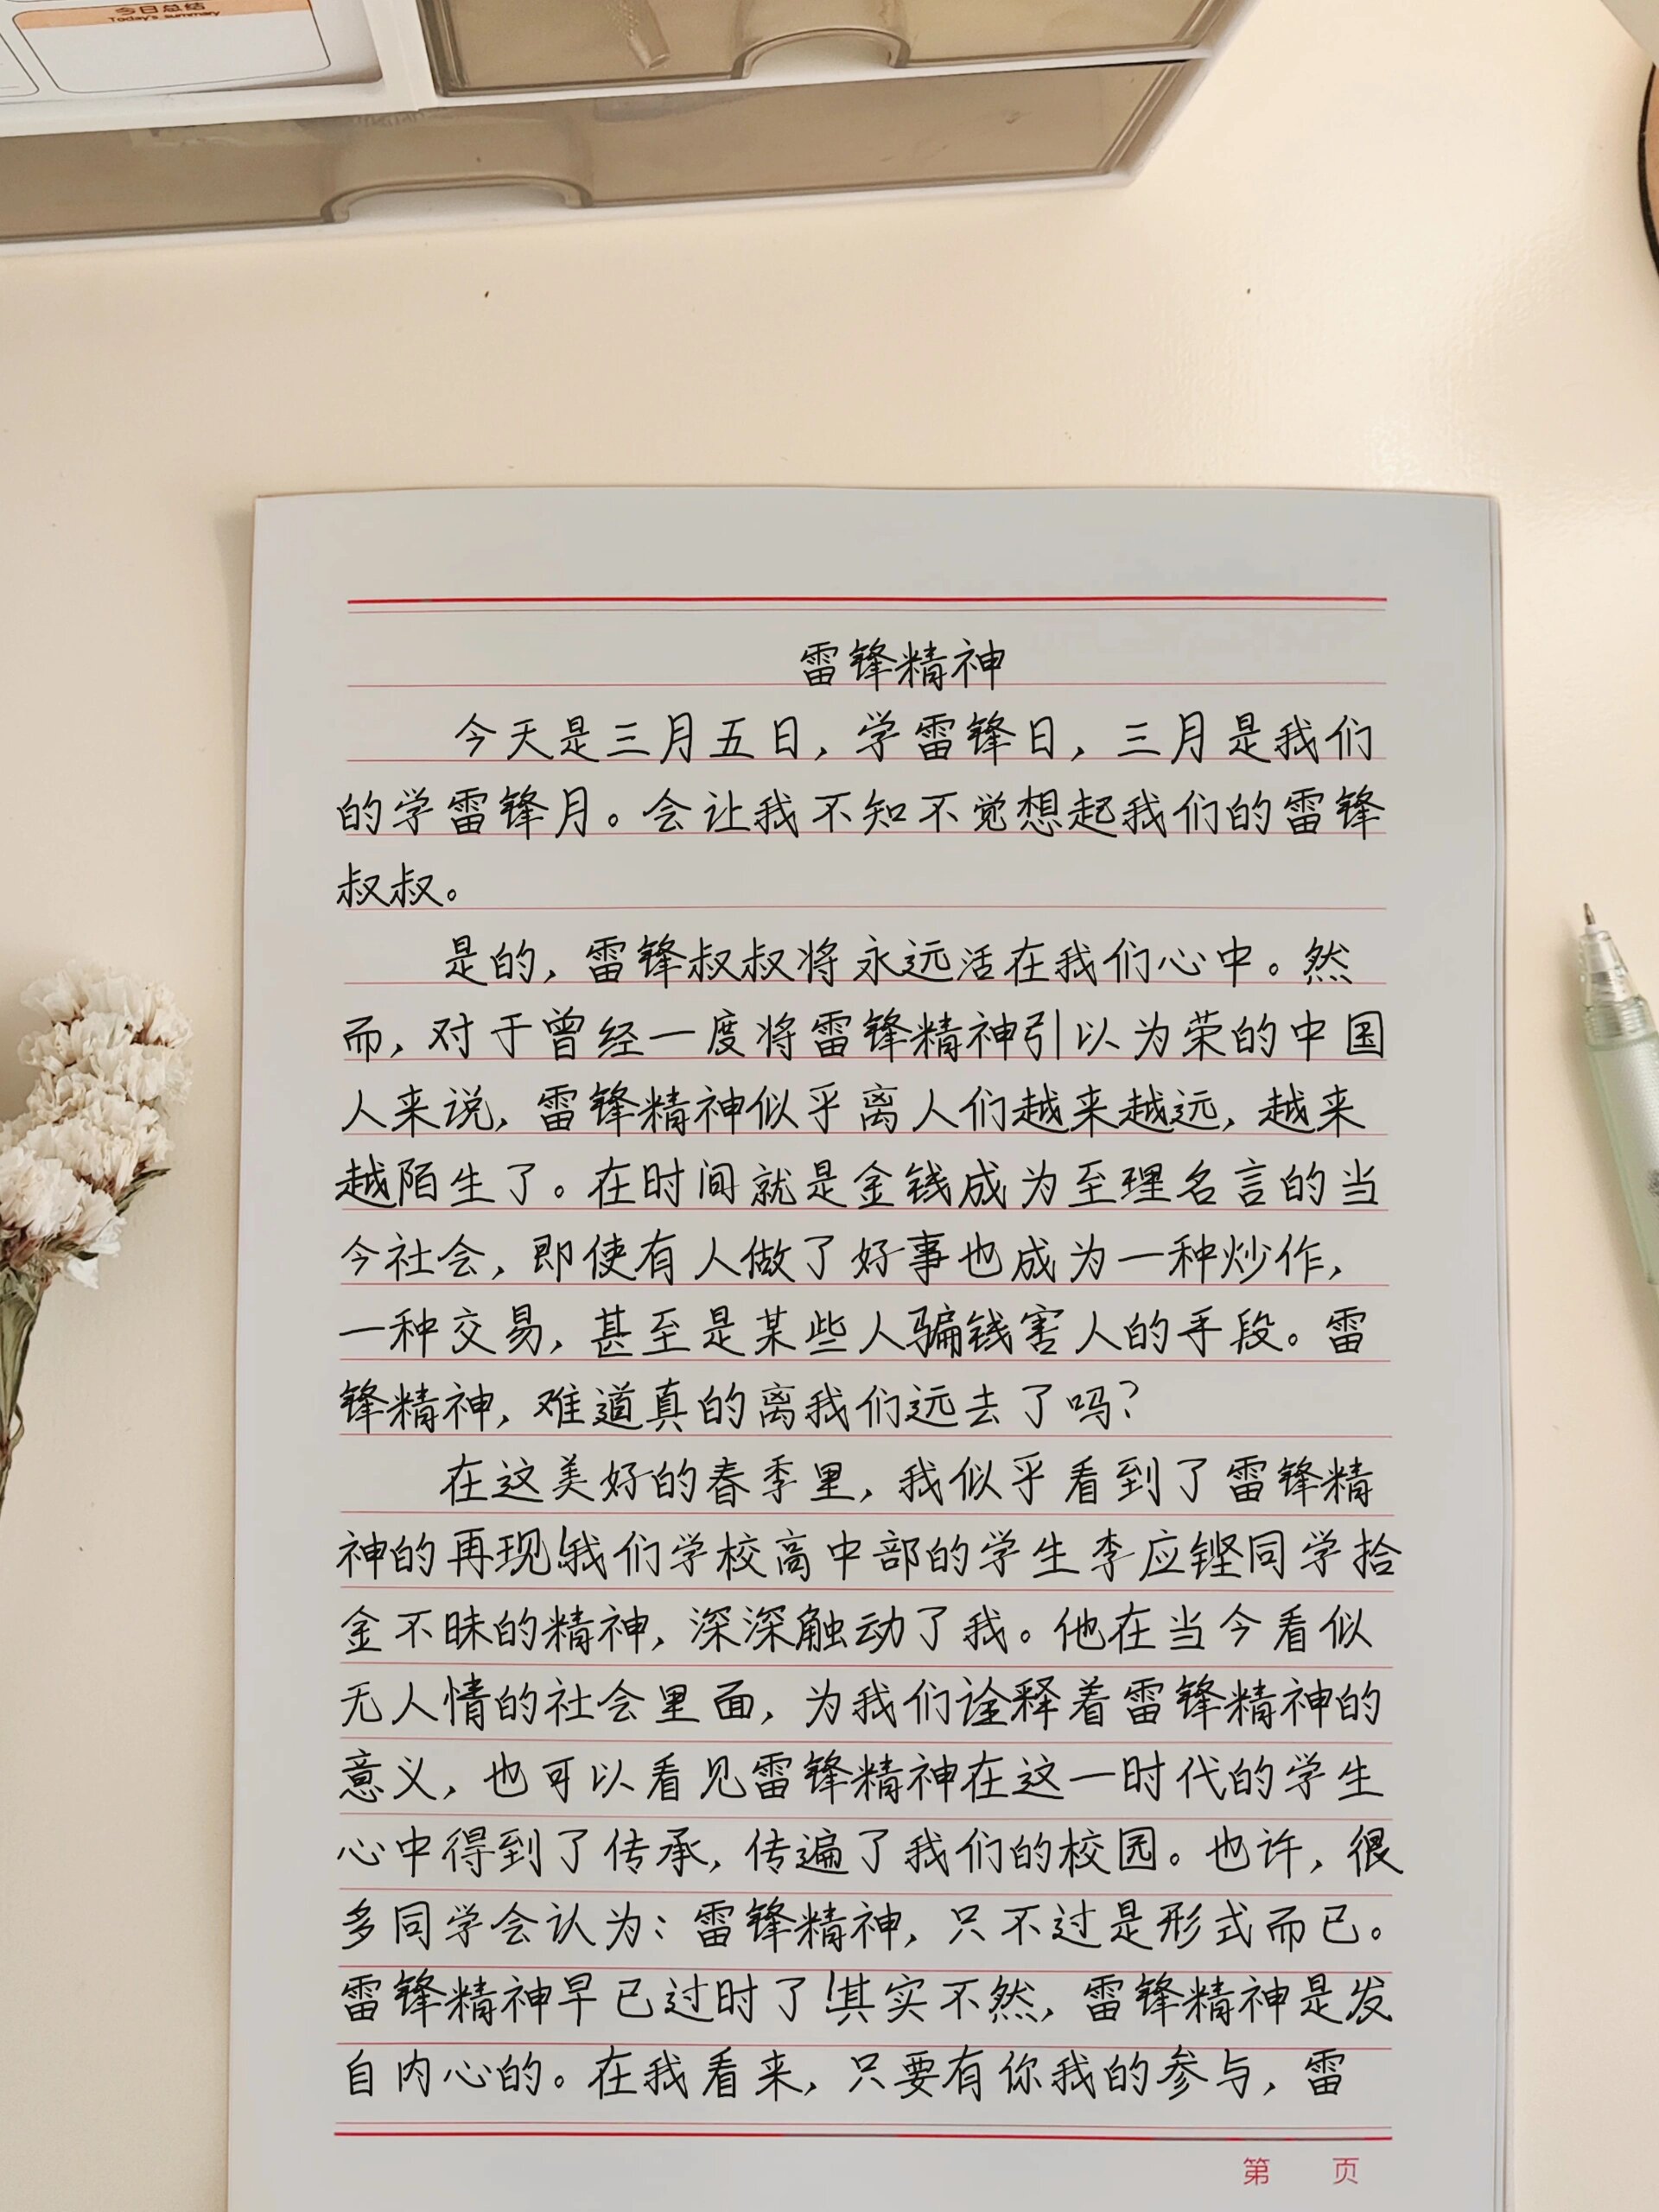 今日总结
Today's summary
雷锋精神
今天是三月五日，学雷锋日，三月是我们
的学雷锋月。会让我不知不觉想起我们的雷锋
叔叔。
是的，雷锋叔叔将永远活在我们心中。然
而，对于曾经一度将雷锋精神引以为荣的中国
人来说，雷锋精神似乎离人们越来越远，越来
越陌生了。在时间就是金钱成为至理名言的当
今社会，即使有人做了好事也成为一种炒作，
一种交易，甚至是某些人骗钱害人的手段。雷
锋精神，难道真的离我们远去了吗？
在这美好的春季里，我似乎看到了雷锋精
神的再现！我们学校高中部的学生李应铿同学拾
金不昧的精神，深深触动了我。他在当今看似
无人情的社会里面，为我们诠释着雷锋精神的
意义，也可以看见雷锋精神在这一时代的学生
心中得到了传承，传遍了我们的校园。也许，很
多同学会认为：雷锋精神，只不过是形式而已。
雷锋精神早已过时了！其实不然，雷锋精神是发
自内心的。在我看来，只要有你我的参与，雷
第 页